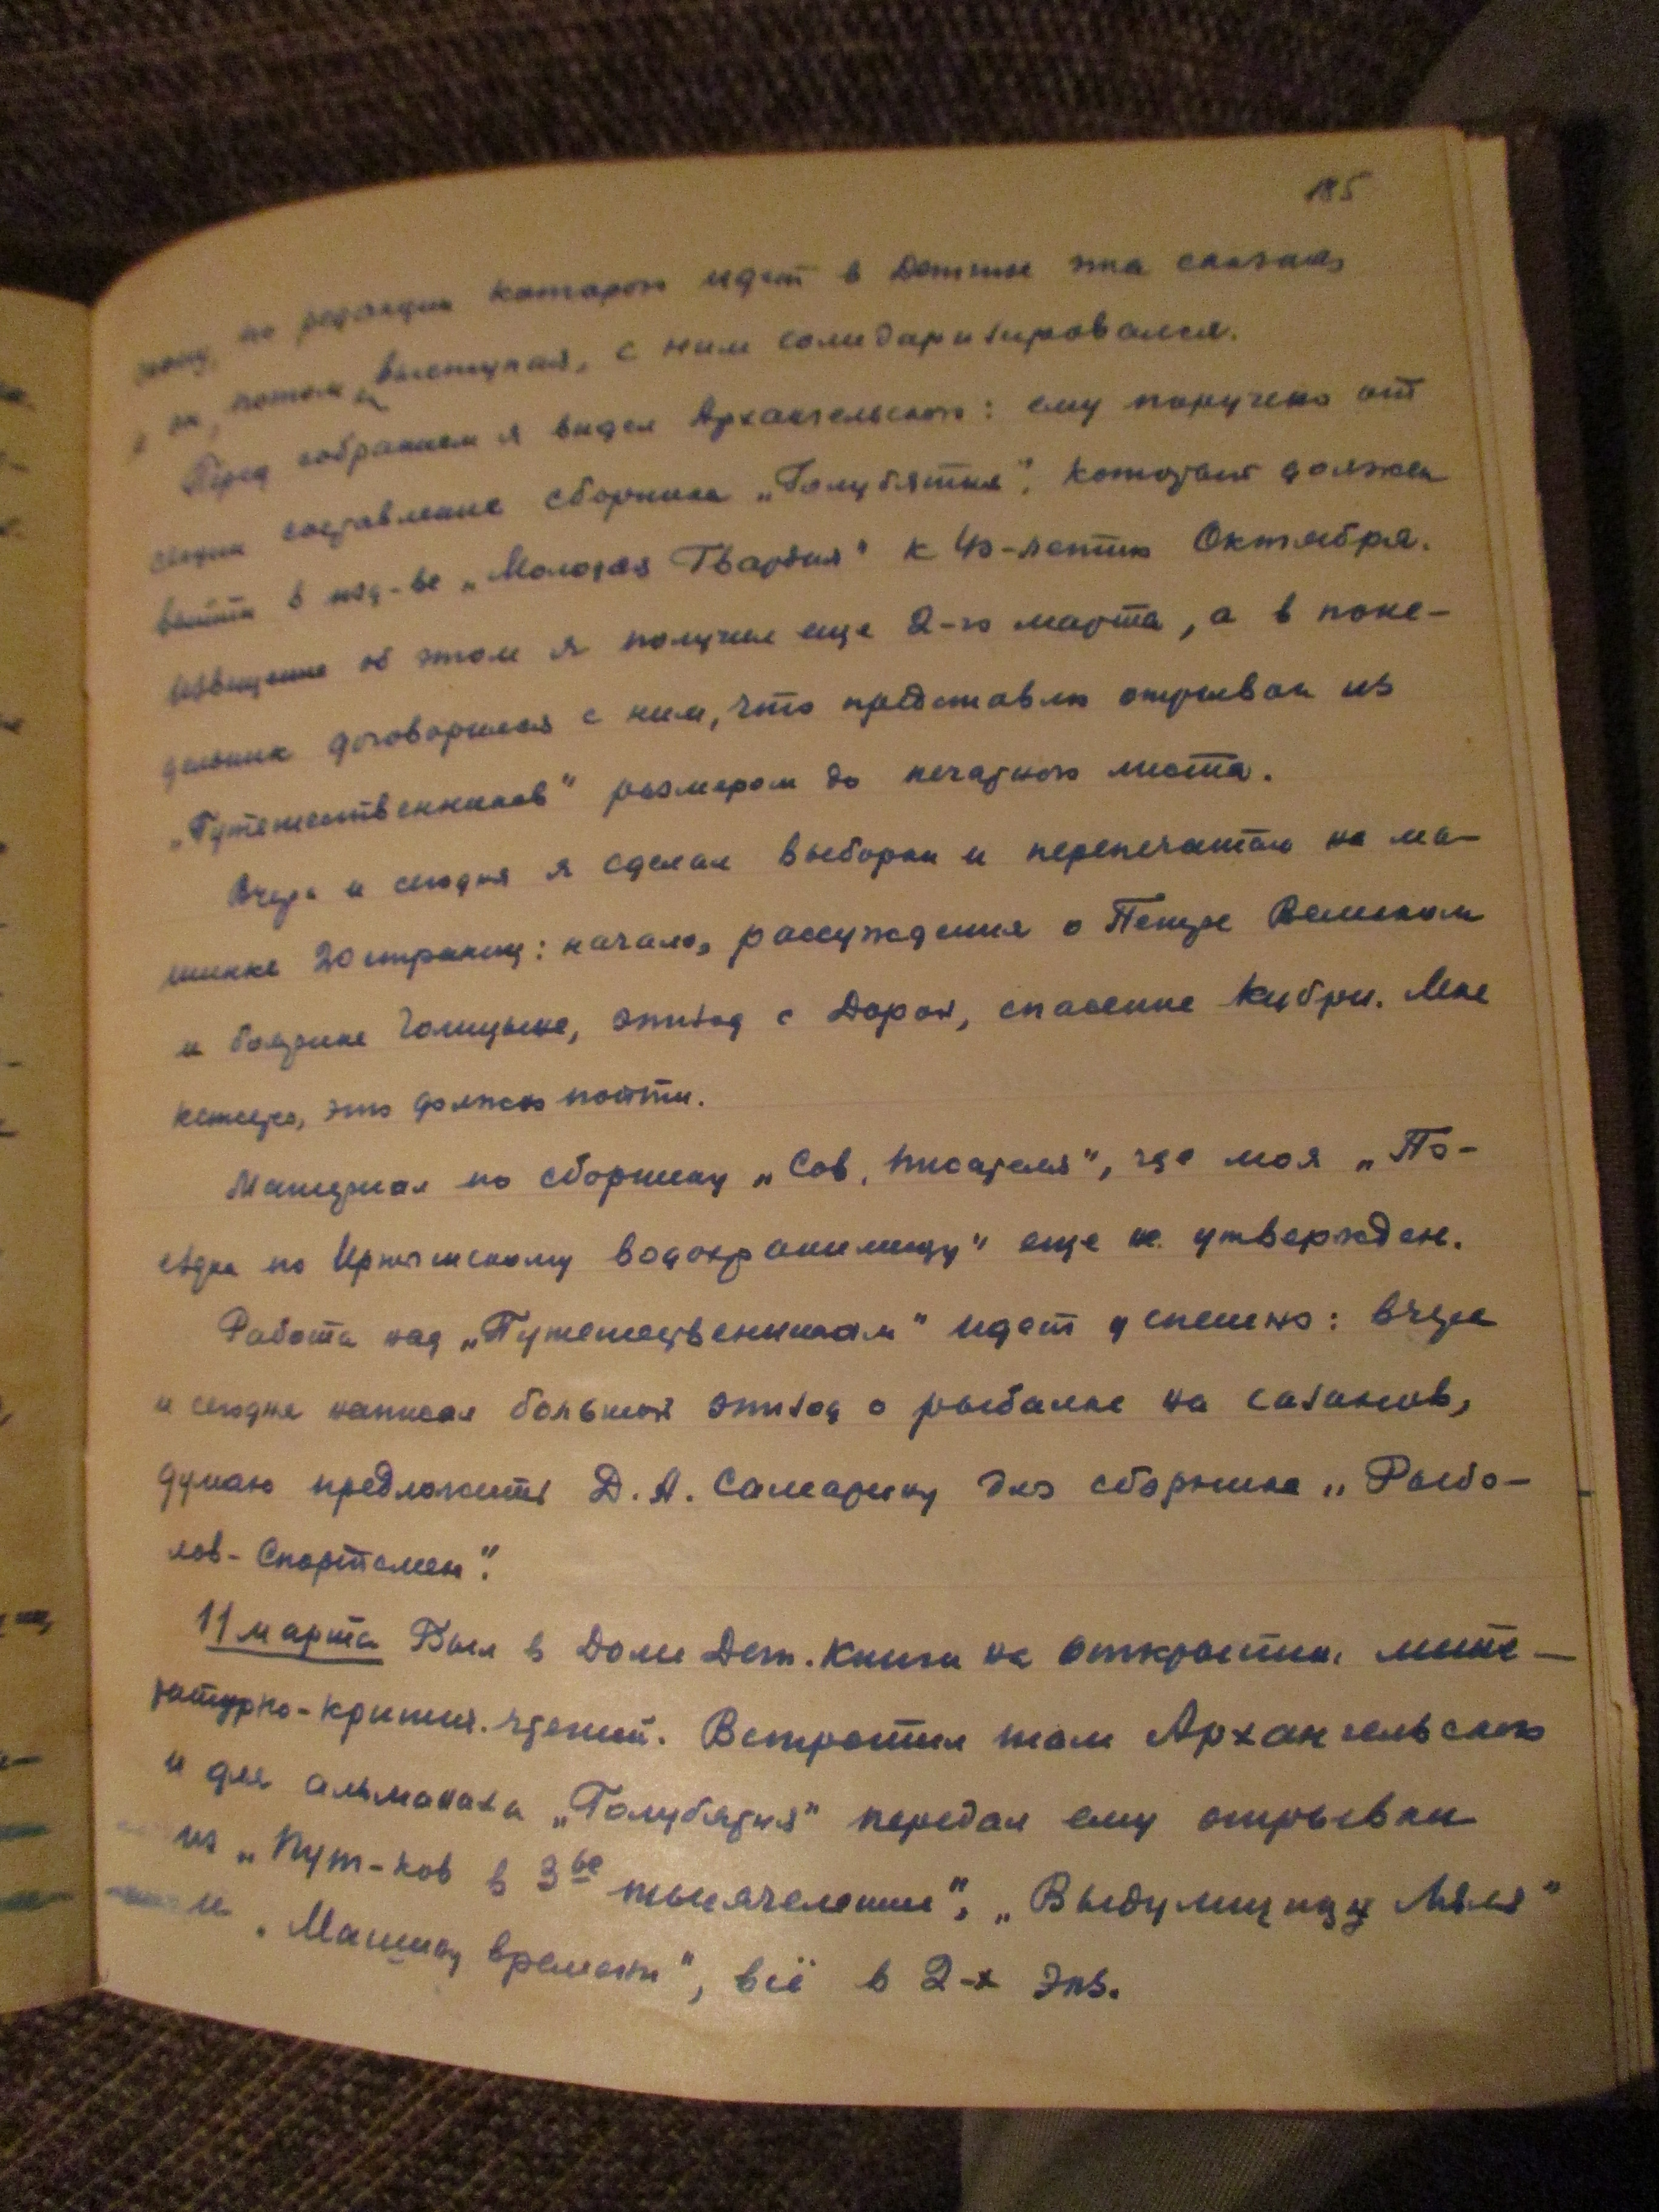 185
по редакции которого идет в Детгизе эта сказка,
и он, потом выступая, с ним солидаризировался.
Перед собранием я видел Архангельского: ему поручено от
секции составление сборника „Голубятня", который должен
выйти в изд-ве „Молодая Гвардия" к 40-летию Октября.
Извещение об этом я получил еще 2-го марта, а в поне-
дельник договорился с ним, что представлю отрывок из
„Путешественников" размером до печатного листа.
Вчера и сегодня я сделал выборки и перепечатал на ма-
шинке 20 страниц: начало, рассуждения о Петре Великом
и боярине Голицыне, эпизод с Дорой, спасение Кубри. Мне
кажется, это должно пойти.
Материал по сборнику „Сов. писателя", где моя „По-
ездка по Иртышскому водохранилищу" еще не утвержден.
Работа над „Путешественниками" идет успешно: вчера
и сегодня написал большой эпизод о рыбалке на сазанов,
думаю предложить Д. А. Самарину для сборника „Рыбо-
лов-Спортсмен".
11 марта Был в Доме Дет. Книги на открытии лите-
ратурно-критич. чтений. Встретил там Архангельского
и для альманаха „Голубятня" передал ему отрывки
из „Пут-ков в 3ье тысячелетие",
и „Машину времени", всё в 2-х экз.